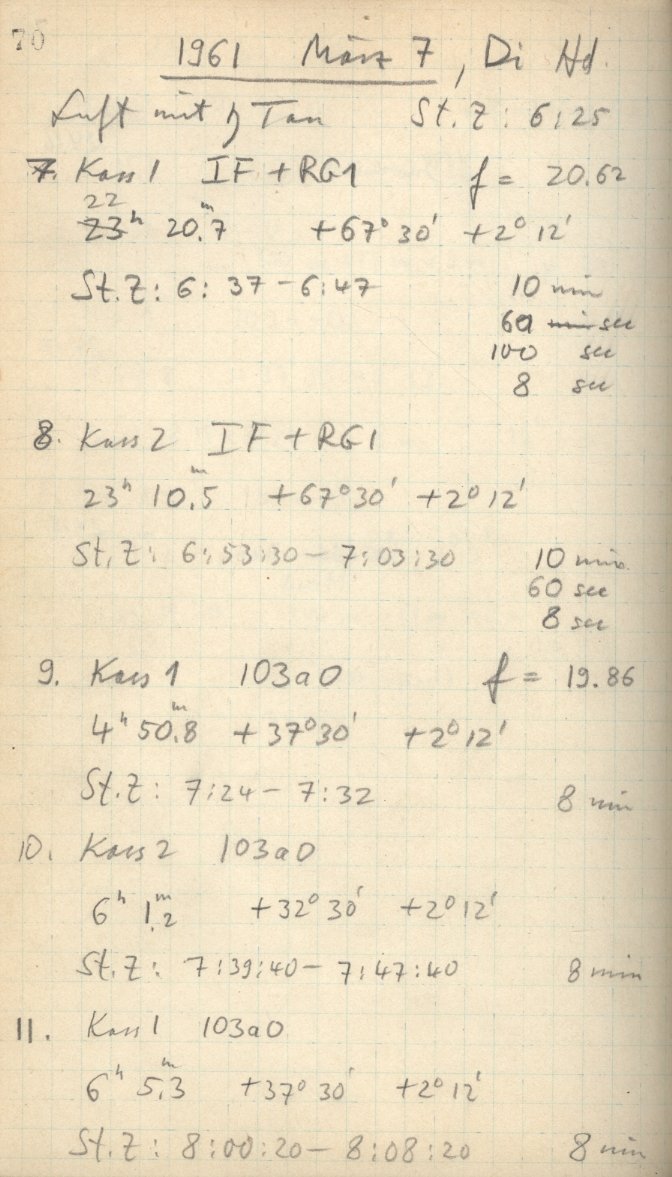 70
1961 März 7, Di Hd.
Luft mit Tau St.Z: 6:25
7. Kass 1 IF + RG1 f = 20.62
22
23ʰ 20ᵐ.7 +67°30' +2°12'
St.Z: 6:37 - 6:47 10 min
60 min sec
100 sec
8 sec
8. Kass 2 IF + RG1
23ʰ 10ᵐ.5 +67°30' +2°12'
St.Z: 6:53:30 - 7:03:30 10 min
60 sec
8 sec
9. Kass 1 103aO f = 19.86
4ʰ 50ᵐ.8 +37°30' +2°12'
St.Z: 7:24 - 7:32 8 min
10. Kass 2 103aO
6ʰ 1ᵐ.2 +32°30' +2°12'
St.Z: 7:39:40 - 7:47:40 8 min
11. Kass 1 103aO
6ʰ 5ᵐ.3 +37°30' +2°12'
St.Z: 8:00:20 - 8:08:20 8 min